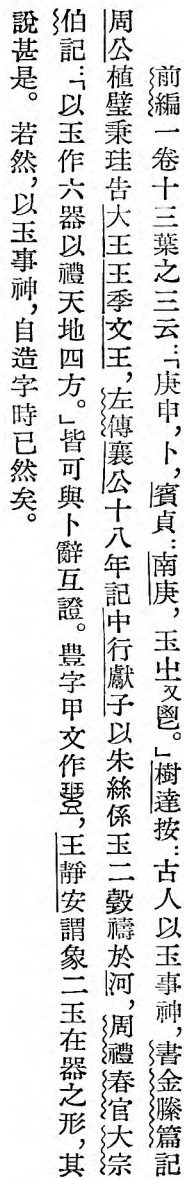 前編一卷十三葉之三云：「庚申，卜，賓貞：南庚，玉㞢又鬯。」樹達按：古人以玉事神，書金縢篇記
周公植璧秉珪告大王王季文王，左傳襄公十八年記中行獻子以朱絲係玉二瑴禱於河，周禮春官大宗
伯記：「以玉作六器以禮天地四方。」皆可與卜辭互證。豊字甲文作，王靜安謂象二玉在器之形，其
說甚是。若然，以玉事神，自造字時已然矣。